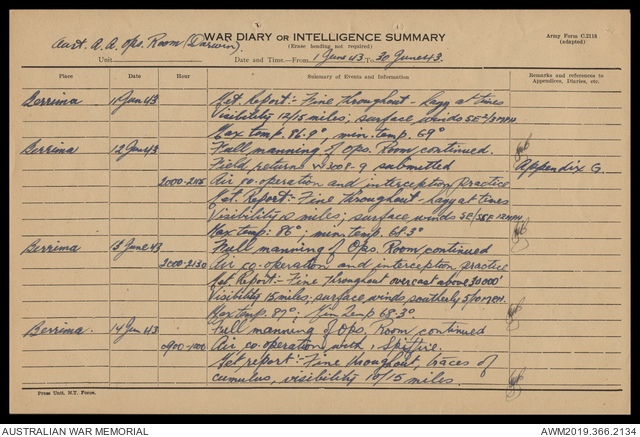 WAR DIARY OR INTELLIGENCE SUMMARY
Army Form C.2118
(adapted)
(Erase heading not required)
Aust. A.A. Ops. Room (Darwin).
Unit
Date and Time—From 1 June 43 To 30 June 43.
Place Date Hour Summary of Events and Information Remarks and references to Appendices, Diaries, etc.
Berrima 11 Jun 43 Met. Report:- Fine throughout - hazy at times
Visibility 12/15 miles; surface winds SE
Max temp. 86.9° min. temp. 69°
Berrima 12 Jun 43 Full manning of Ops. Room continued.
Field return W3008-9 submitted Appendix G.
2000-2115 Air co-operation and interception practice
Met. Report:- Fine throughout - hazy at times
Visibility miles; surface winds SE/SSE 12 MPH
Max temp: 86° min. temp. 68.3°
Berrima 13 June 43 Full manning of Ops. Room continued
2000-2130 Air co-operation and interception practice
Met. Report:- Fine throughout overcast above 30000'
Visibility 15 miles, surface winds, southerly 5/10 MPH.
Max temp. 87°; Min Temp 68.3°
Berrima. 14 Jun 43 Full manning of Ops. Room continued
0900-1000 Air co-operation with 1 Spitfire.
Met report:- Fine throughout, traces of
cumulus, visibility 10/15 miles.
Press Unit, N.T. Force.
AUSTRALIAN WAR MEMORIAL
AWM2019.366.2134